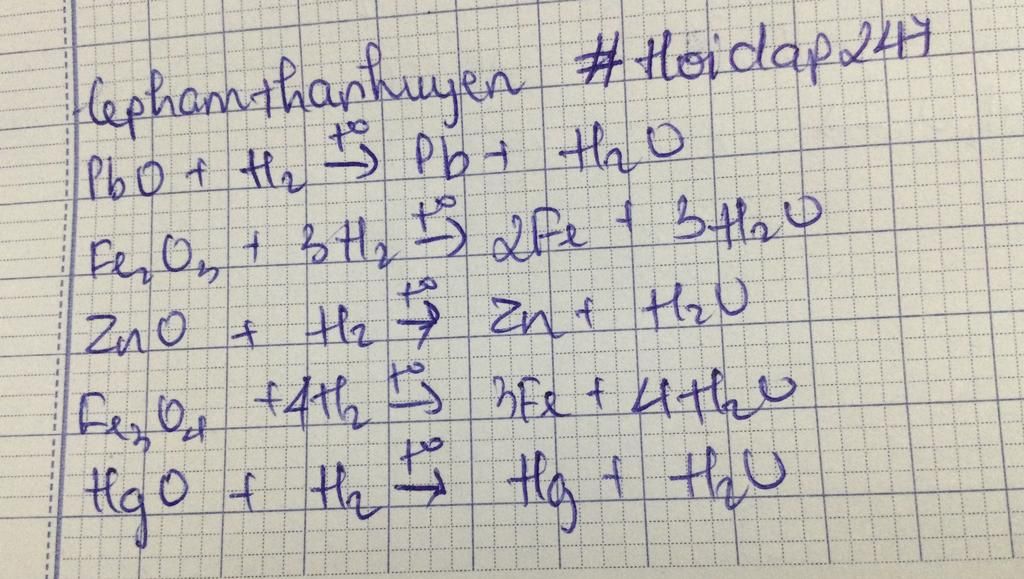 lephamthanhuyen #Hoidap247
PbO + H₂ →t° Pb + H₂O
Fe₂O₃ + 3H₂ →t° 2Fe + 3H₂O
ZnO + H₂ →t° Zn + H₂O
Fe₃O₄ +4H₂ →t° 3Fe + 4H₂O
HgO + H₂ →t° Hg + H₂O